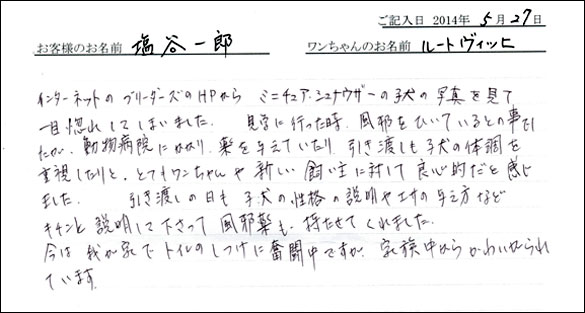 ご記入日 2014年 5月27日
お客様のお名前 塩谷一郎 ワンちゃんのお名前 ルートヴィッヒ
インターネットのブリーダーズのHPから ミニチュア・シュナウザーの子犬の写真を見て
一目惚れしてしまいました. 見学に行った時, 風邪をひいているとの事でし
たが, 動物病院にかかり, 薬を与えていたり, 引き渡しも子犬の体調を
重視したりと, とてもワンちゃんや新しい飼い主に対して良心的だと感じ
ました. 引き渡しの日も子犬の性格の説明やエサの与え方など
キチンと説明して下さって風邪薬も, 持たせてくれました.
今は我が家でトイレのしつけに奮闘中ですが, 家族中からかわいがられ
ています.